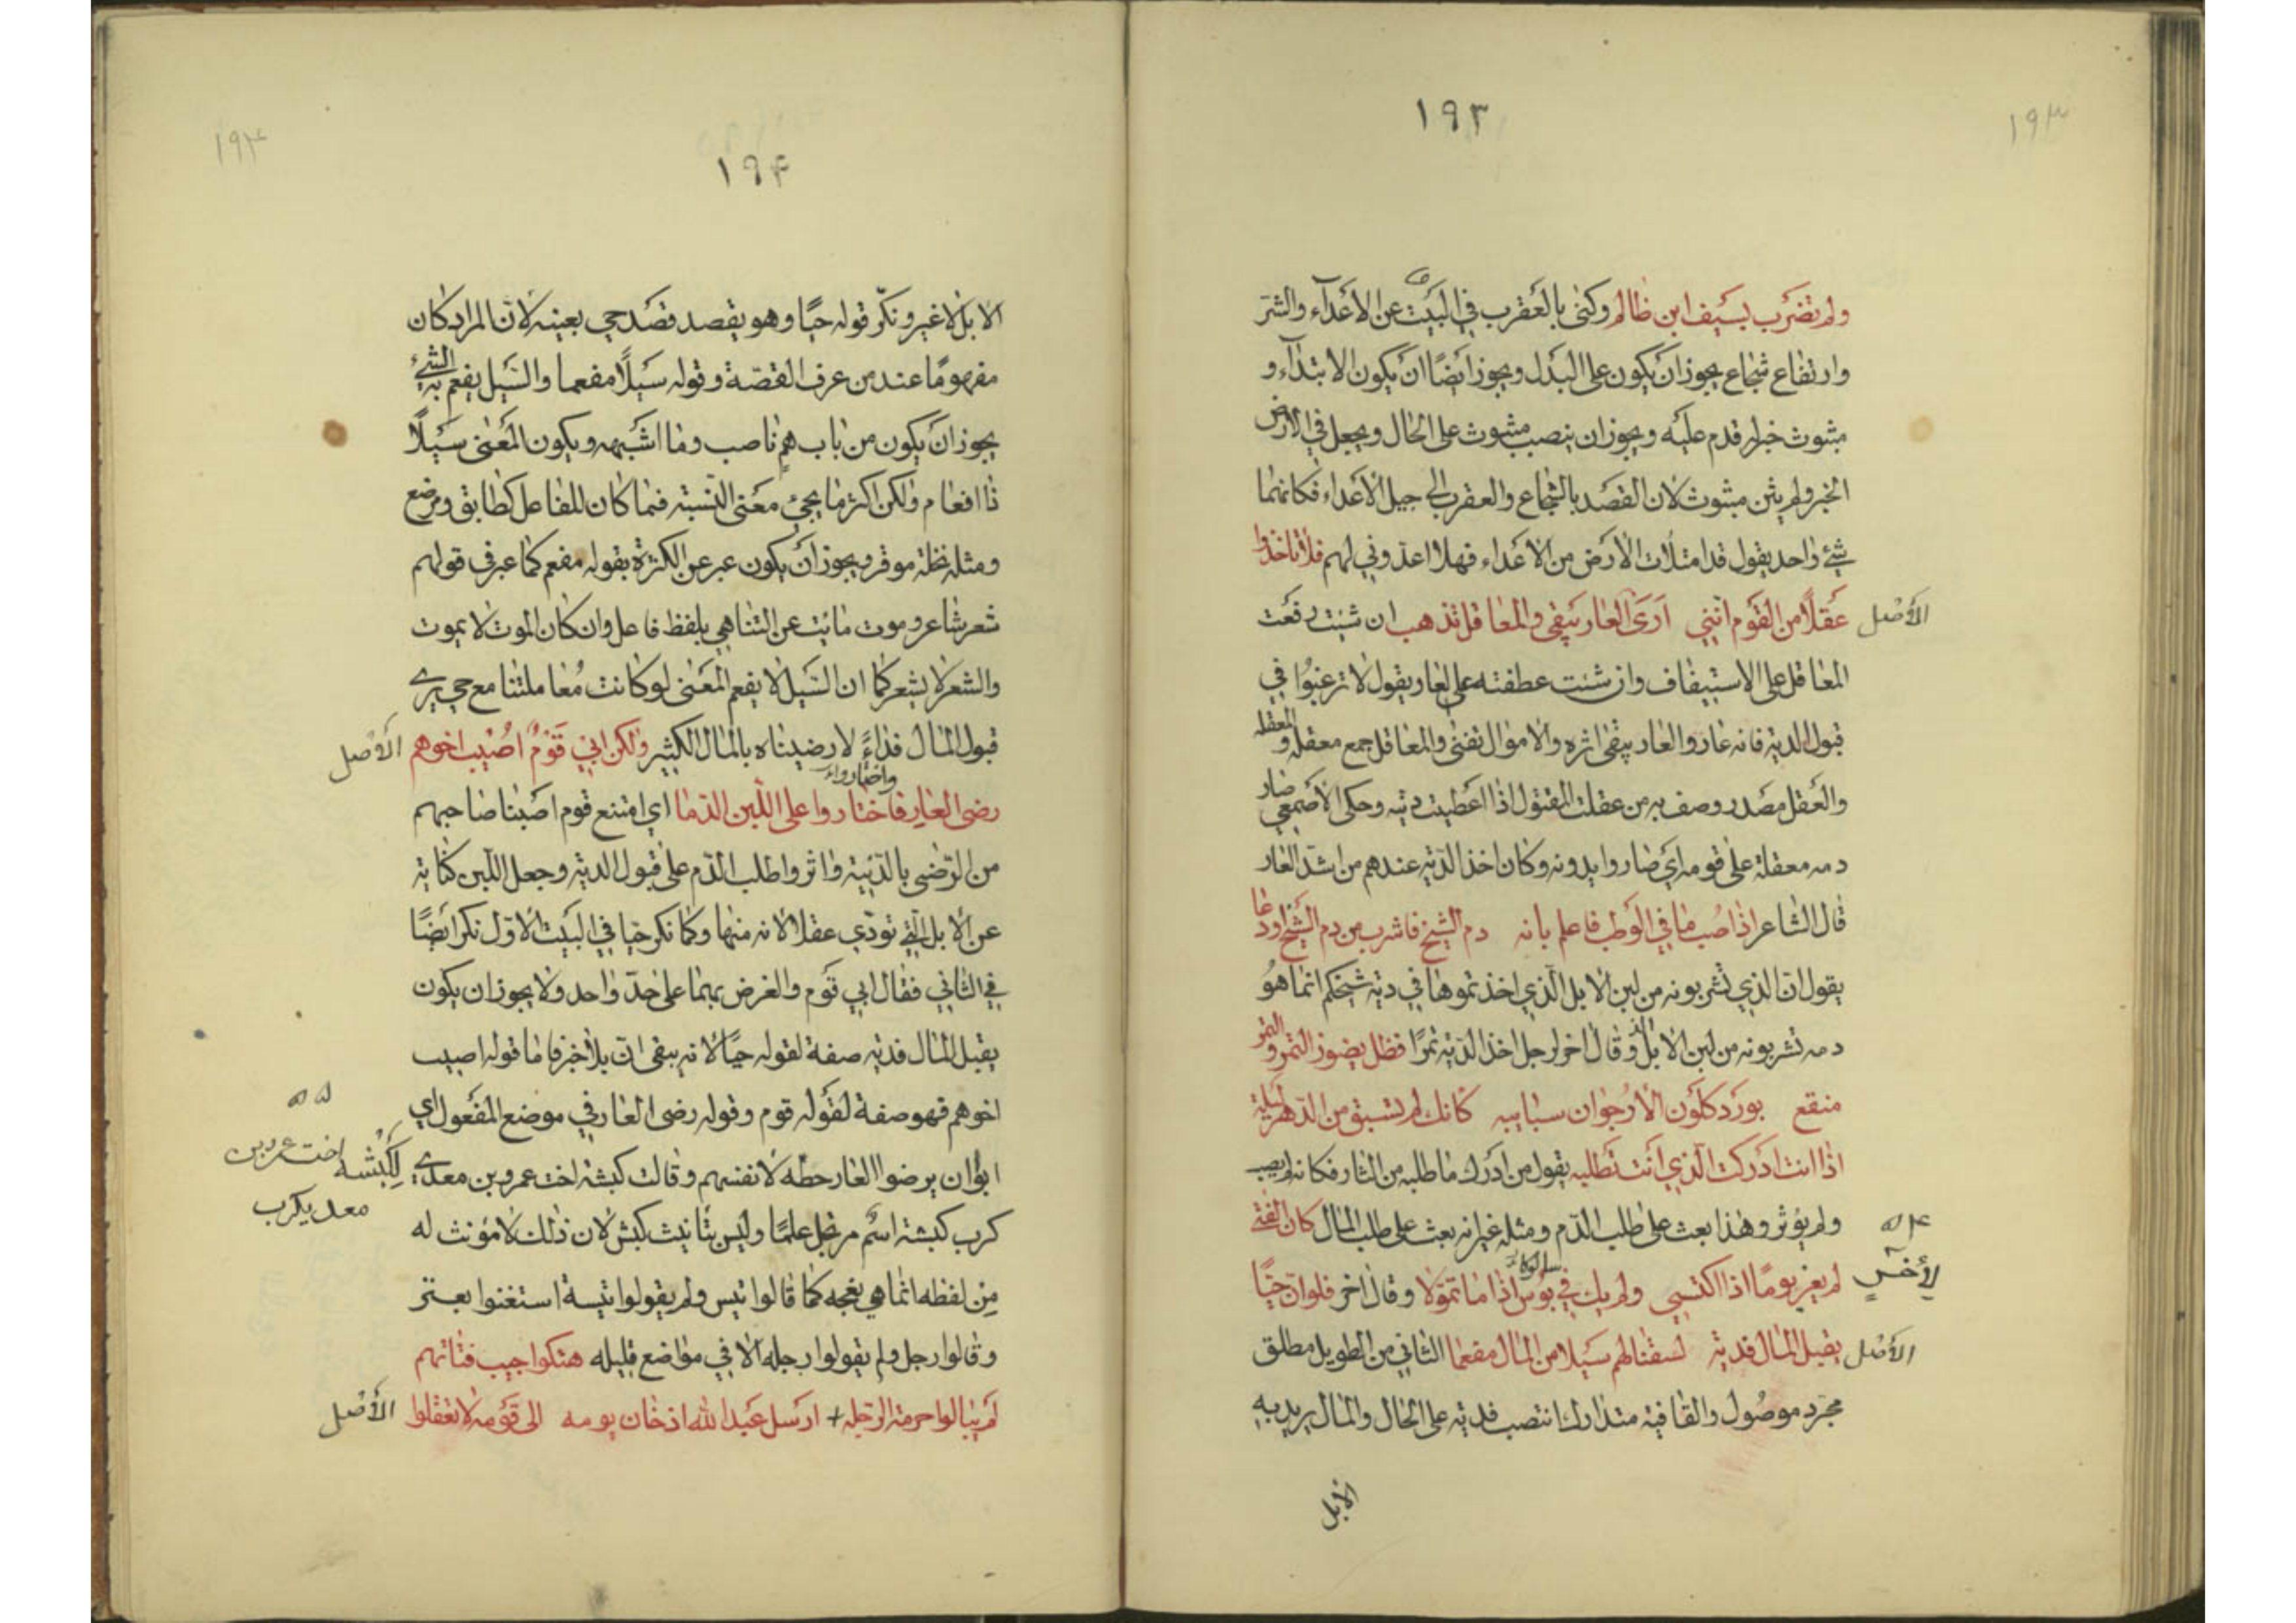 ١٩٣
١٩٣
ولم تضرب بسيف ابن ظالم وكنى بالعقرب في البيت عن الأعداء والشر
وارتفاع شجاع يجوز ان يكون على البدل ويجوز ايضًا ان يكون الابتداء و
مبثوث خبر قدم عليه ويجوز ان ينصب مبثوث على الحال ويجعل في الارض
الخبر ولم يثن مبثوث لان القصد بالشجاع والعقرب الى جيل الأعداء فكانهما
شئ واحد يقول قد امتلات الارض من الاعداء فهلا اعدوني لهم فلا تاخذوا
عقلًا من القوم انني ارى العار يبقى والمعاقل تذهب ان شئت رفعت
الأصل
المعاقل على الاستيناف وان شئت عطفته على العار يقول لا ترغبوا في
قبول الدية فانه عار والعار يبقى اثره والاموال تفنى والمعاقل جمع معقلة و المعقلة
والعقل مصدر وصف به من عقلت المقتول اذا اعطيت ديته وحكى الأصمعي صار
دمه معقلة على قومه اي صاروا يدونه وكان اخذ الدية عندهم من اشد العار
قال الشاعر اذا صب ما في الوطب فاعلم بانه دم الشيخ فاشرب من دم الشيخ اودعا
يقول ان الذي تشربونه من لبن الابل الذي اخذتموها في دية شيخكم انما هو
دمه تشربونه من لبن الابل وقال اخر لرجل اخذ الدية تمرًا فظل يضوز التمر والتمر
منقع بورد كلون الأرجوان سبايبه كانك لم تسبق من الدهر ليلة
اذا انت ادركت الذي انت تطلبه يقول من ادرك ما طلبه من الثار فكانه لم يصب
ولم يوثر وهذا بعث على طلب الدم ومثله غير انه بعث على طلب المال كان الفتى
٥٤
لأخر
لم يعز يومًا اذا اكتسى ولم يك في بؤس اذا ما تمولا وقال اخر فلو ان حيًا
يقبل المال فدية لسقنا لهم سيلا من المال مفعما الثاني من الطويل مطلق
الأصل
مجرد موصول والقافية متدارك انتصب فدية على الحال والمال يريد به
الابل
١٩٤
١٩٤
الابل لا غير ونكر قوله حيًا وهو يقصد قصد حي بعينه لان المراد كان
مفهومًا عند من عرف القصة وقوله سيلًا مفعما والسيل يفعم به الشئ
يجوز ان يكون من باب هم ناصب وما اشبهه ويكون المعنى سيلًا
ذا افعام ولكن اكثر ما يجئ معنى النسبة فيما كان للفاعل كطابق ومرضع
ومثله نخلة موقر ويجوز ان يكون عبر عن الكثرة بقوله مفعم كما عبر في قولهم
شعر شاعر وموت مائت عن التناهي بلفظ فاعل وان كان الموت لا يموت
والشعر لا يشعر كما ان السيل لا يفعم المعنى لو كانت معاملتنا مع حي يرى
قبول المال فداءً لارضيناه بالمال الكثير ولكن ابى قومٌ اصيب اخوهم
الأصل
واختاروا
رضى العار فاختاروا على اللبن الدما اي امتنع قوم اصبنا صاحبهم
من الرضى بالدنية واثروا طلب الدم على قبول الدية وجعل اللبن كناية
عن الابل التي تودي عقلا لانه منها وكما نكر حيا في البيت الاول نكر ايضًا
في الثاني فقال ابى قوم والغرض بهما على حد واحد ولا يجوز ان يكون
يقبل المال فدية صفة لقوله حيًا لانه يبقى ان بلا خبر فاما قوله اصيب
اخوهم فهو صفة لقوله قوم وقوله رضى العار في موضع المفعول اي
ابوا ان يرضوا العار حطة لانفسهم وقالت كبشة اخت عمرو بن معدي
٥٥
لكبشة اخت عمرو بن
معديكرب
كرب كبشة اسم مرتجل علمًا وليس بتانيث كبش لان ذلك لا مؤنث له
من لفظه انما هي نعجة كما قالوا تيس ولم يقولوا تيسة استغنوا بعنز
وقالوا رجل ولم يقولوا رجلة الا في مواضع قليلة هتكوا جيب فتاتهم
لم يبالوا حرمة الرجلة + ارسل عبد الله اذ حان يومه الى قومه لا تعقلوا
الأصل